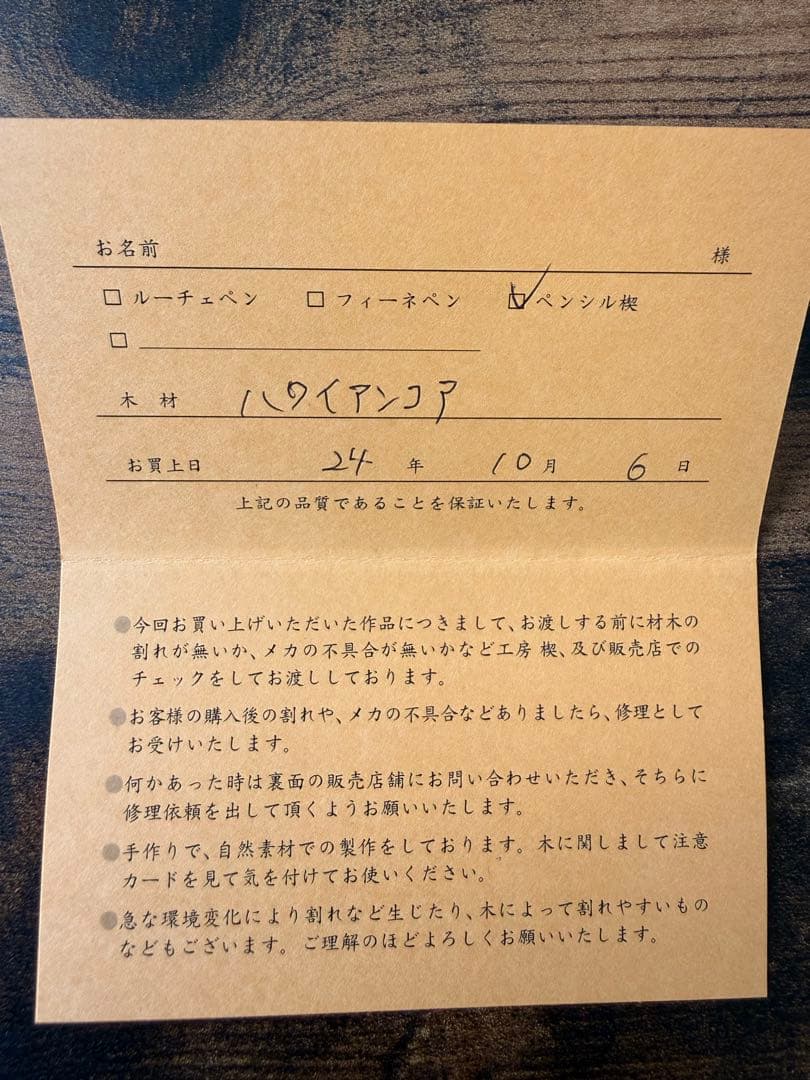 お名前 様
□ ルーチェペン □ フィーネペン ☑ ペンシル楔
□
木 材 ハワイアンコア
お買上日 24 年 10 月 6 日
上記の品質であることを保証いたします。
●今回お買い上げいただいた作品につきまして、お渡しする前に材木の
割れが無いか、メカの不具合が無いかなど工房 楔、及び販売店での
チェックをしてお渡ししております。
●お客様の購入後の割れや、メカの不具合などありましたら、修理として
お受けいたします。
●何かあった時は裏面の販売店舗にお問い合わせいただき、そちらに
修理依頼を出して頂くようお願いいたします。
●手作りで、自然素材での製作をしております。木に関しまして注意
カードを見て気を付けてお使いください。
●急な環境変化により割れなど生じたり、木によって割れやすいもの
などもございます。ご理解のほどよろしくお願いいたします。